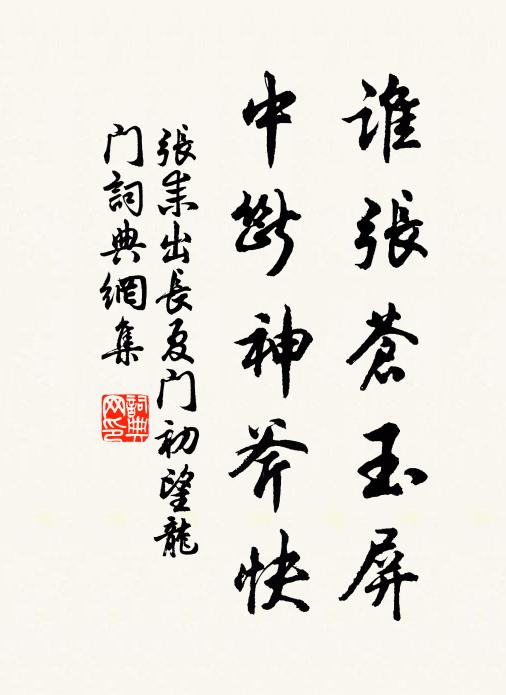 誰張蒼玉屏
中斷神斧快
張耒出長夏门初望龍
门詞典網集
詞典网印